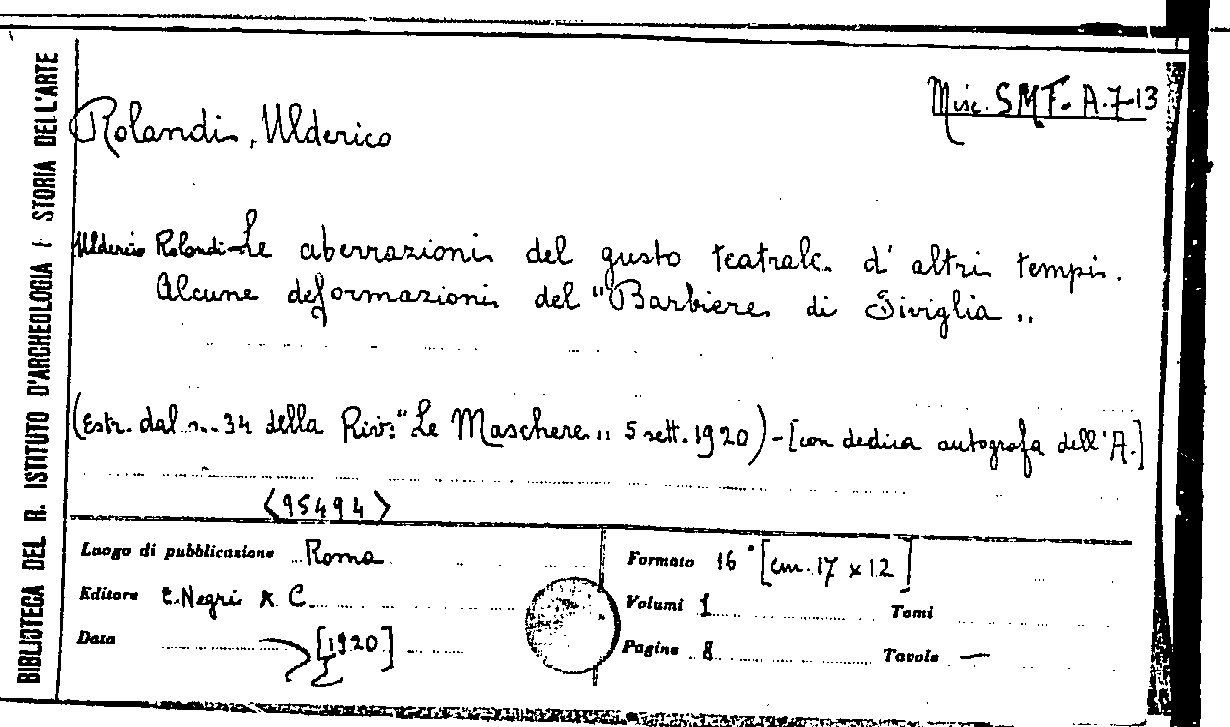 BIBLIOTECA DEL R. ISTITUTO D'ARCHEOLOGIA E STORIA DELL'ARTE
Misc. SMF. A.7-13
Rolandi, Ulderico
Ulderico Rolandi - Le aberrazioni del gusto teatrale d'altri tempi.
Alcune deformazioni del "Barbiere di Siviglia"
(Estr. dal n. 34 della Riv: "Le Maschere" 5 sett. 1920) - [con dedica autografa dell'A.]
<95494>
Luogo di pubblicazione Roma
Editore C. Negri & C.
Data [1920]
Formato 16° [cm. 17 x 12]
Volumi 1 Tomi
Pagine 8 Tavole —